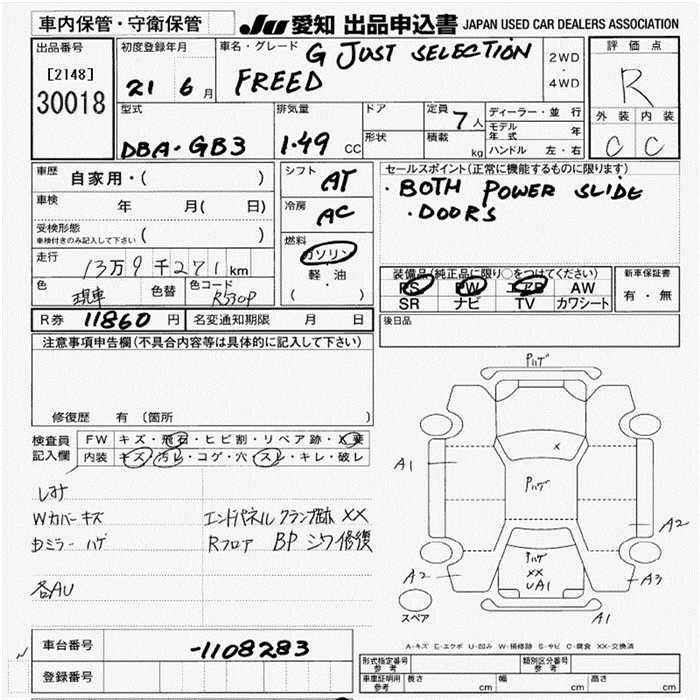 車内保管・守衛保管
JU 愛知 出品申込書 JAPAN USED CAR DEALERS ASSOCIATION
出品番号
[2148]
30018
初度登録年月
21 6月
車名・グレード
G JUST SELECTION
FREED
2WD
・
4WD
評価点
R
外装 内装
C C
型式
DBA-GB3
排気量
1.49 CC
ドア
形状
定員 7人
積載 kg
ディーラー・並行
モデル年式 年
ハンドル 左・右
車歴
自家用・( )
車検
年 月( 日)
受検形態
車検付きのみ記入して下さい ( )
走行
13万9千271km
色
現車
色替
色コード
R530P
シフト
AT
冷房
AC
燃料
ガソリン
軽・油
( ・ )
セールスポイント(正常に機能するものに限ります)
・BOTH POWER SLIDE
・DOORS
装備品(純正品に限り○をつけてください)
PS PW エアB AW
SR ナビ TV カワシート
新車保証書
有・無
後日品
R券 11860円
名変通知期限 月 日
注意事項申告欄(不具合内容等は具体的に記入して下さい)
修復歴 有 〔箇所 〕
検査員
記入欄
FW キズ・飛石・ヒビ割・リペア跡・X要
内装 キズ・汚レ・コゲ・穴・スレ・キレ・破レ
シミ
Wカバーキズ
Dミラー ハゲ
各AU
エンドパネル クランプ跡 XX
Rフロア BP シワ修復
Pハゲ
X
A1
Pハゲ
A2
Pハゲ
XX
UA1
A2
A3
A1
スペア
A-キズ E-エクボ U-凹み W-補修跡 S-サビ C-腐食 XX-交換済
車台番号
-1108283
登録番号
形式指定番号
参考
類別区分番号
参考
車庫証明用
参考
長さ cm
幅 cm
高さ cm